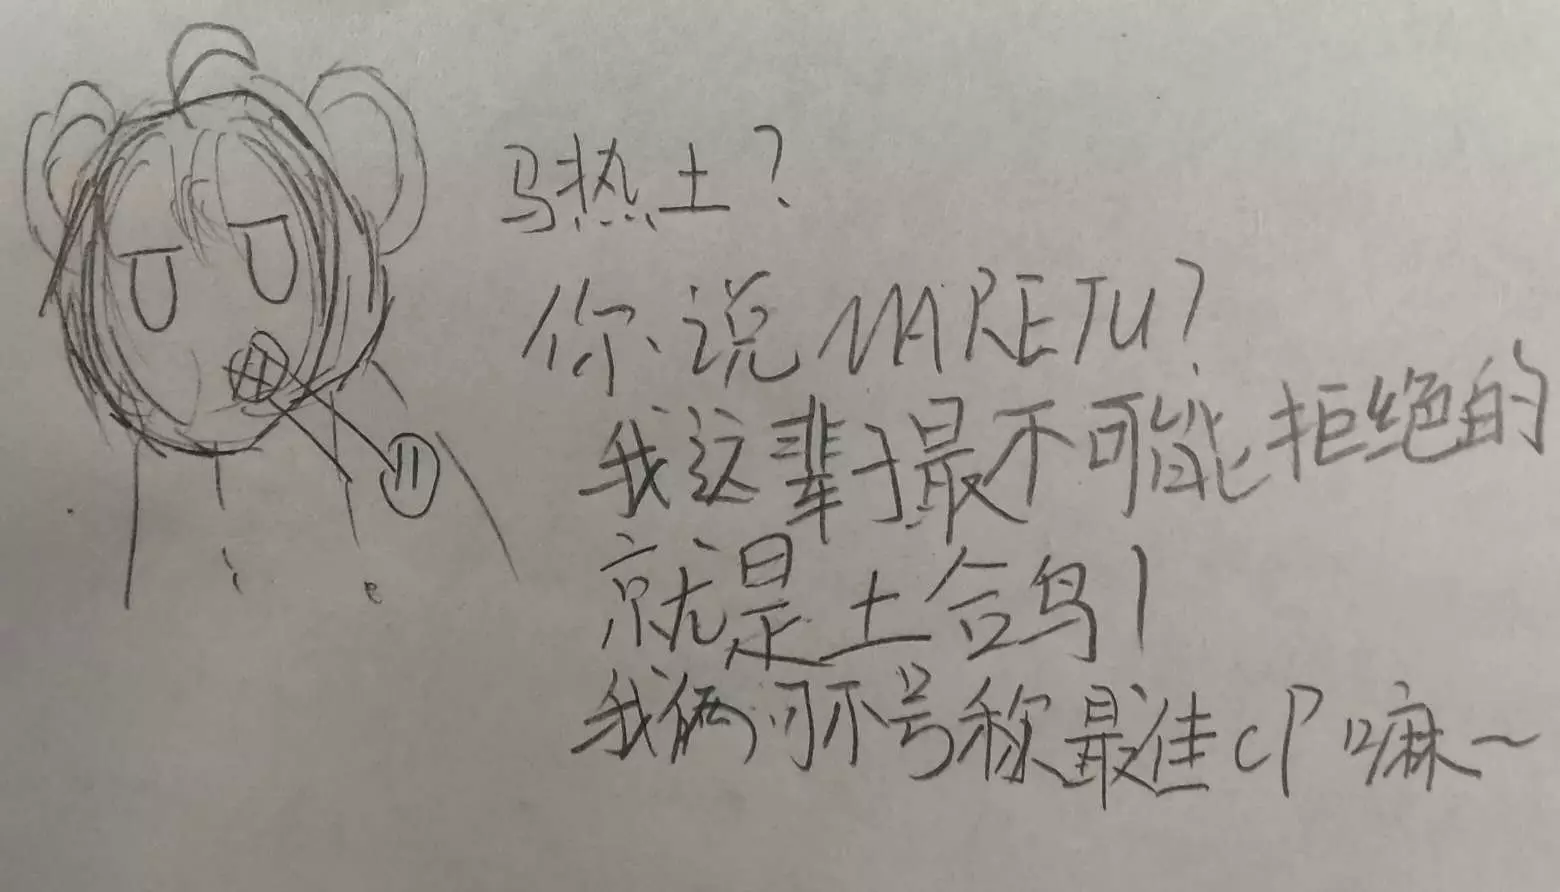 马热土？
你说MARETU？
我这辈子最不可能拒绝的
就是土合鸟！
我俩可不号称最佳CP嘛~